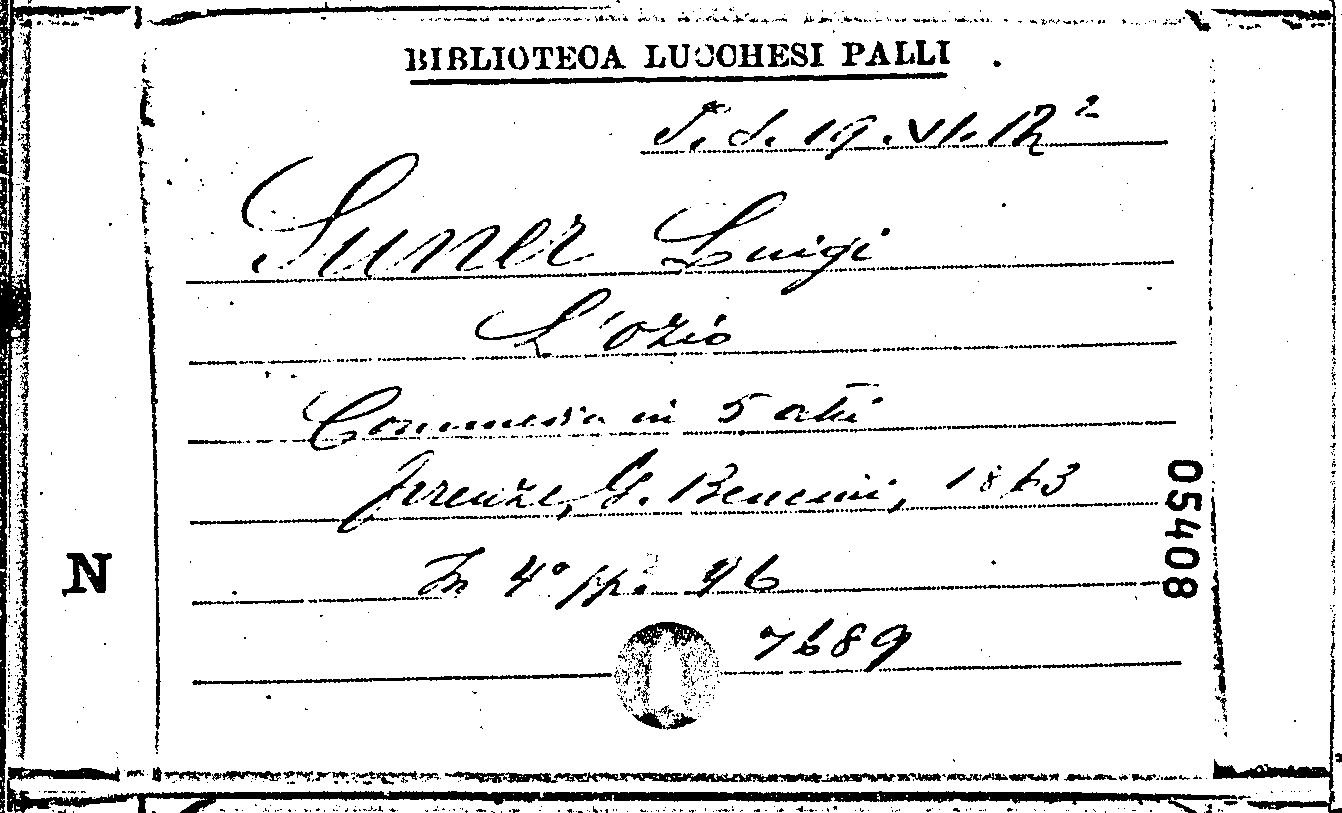 BIBLIOTECA LUCCHESI PALLI
S. d. 19. VI. 12²
Suner Luigi
L'ozio
Commedia in 5 atti
Firenze, G. Bencini, 1863
05408
N
In 4° pp. 46
7689